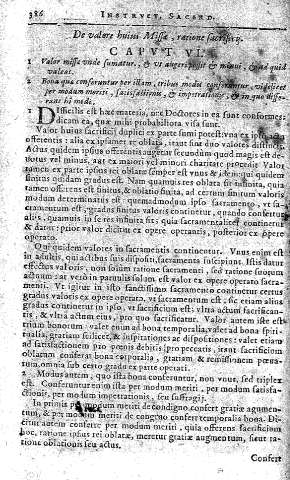 386 INSTRUCT. SACERD.
De valore huius Missæ, ratione sacrificii.
CAPVT VI.
1 Valor missæ unde sumatur, & ut augeri possit & minui, & ad quid
valeat.
2 Bona quæ conferuntur per illam, tribus modis conferuntur, videlicet
per modum meriti, satisfactionis, & impetrationis, & in quo diffe-
rant hi modi.
1 DIfficilis est hæc materia, nec Doctores in ea sunt conformes:
dicam ea, quæ mihi probabiliora visa sunt.
Valor huius sacrificij duplici ex parte sumi potest: vna ex ipsa
offerentis: alia ex ipsamet re oblata, itaut sint duo valores distincti.
Actus quidem ipsius offerentis augetur secundum quod magis est de-
uotus vel minus, aut ex maiori vel minori charitate procedit. Valor
tamen ex parte ipsius rei oblatæ semper est vnus & idem: qui quidem
finitus quosdam gradus est. Nam quamuis res oblata sit infinita, quia
tamen offerens est finitus, & oblatio finita, ad certum finitum valoris
modum determinatus est: quemadmodum ipso sacramento,
cramentum est, gradus finitus valoris continetur, quando confertur
alijs, quamuis in se res infinita sit: sic quia sacramentaliter continetur
& datur: prior valor dicitur ex opere operantis, posterior ex opere
operato.
Qui quidem valores in sacramentis continentur. Vnus enim est
in adulto, qui actibus suis dispositi, sacramenta suscipiunt. Istis datur
effectus valoris, non solum ratione sacramenti, sed ratione suorum
actuum: at verò in paruulis solum est valor ex opere operato sacra-
menti. Vt igitur in isto sanctissimo sacramento continetur certus
gradus valoris ex opere operato, vt sacramentum est, sic etiam alius
gradus continetur in ipso, vt sacrificium est: vltra actum sacrifican-
tis, & vltra actum eius, pro quo sacrificatur. Valor autem iste est
trium bonorum. valet enim ad bona temporalia, valet ad bona spiri-
tualia, gratiam scilicet, & inspirationes ac dispositiones: valet etiam
ad satisfactionem pro pœnis debitis pro peccatis, itaut sacrificium
oblatum conferat bona corporalia, gratiam, & remissionem pœna-
rum. omnia sub certo gradu ex parte operati.
2 Modus autem, quo ista bona conferuntur, non vnus, sed triplex
est. Conferuntur enim ista per modum meriti, per modum satisfa-
ctionis, per modum impetrationis, seu suffragij.
In primis per modum meriti de condigno confert gratiæ augmen-
tum, & per modum meriti de congruo confert temporalia bona. Di-
citur autem conferre per modum meriti, quia offerens sacrificium
hoc, ratione ipsius rei oblatæ, meretur gratiæ augmentum, seu ra-
tione oblationis seu actus.
Confert